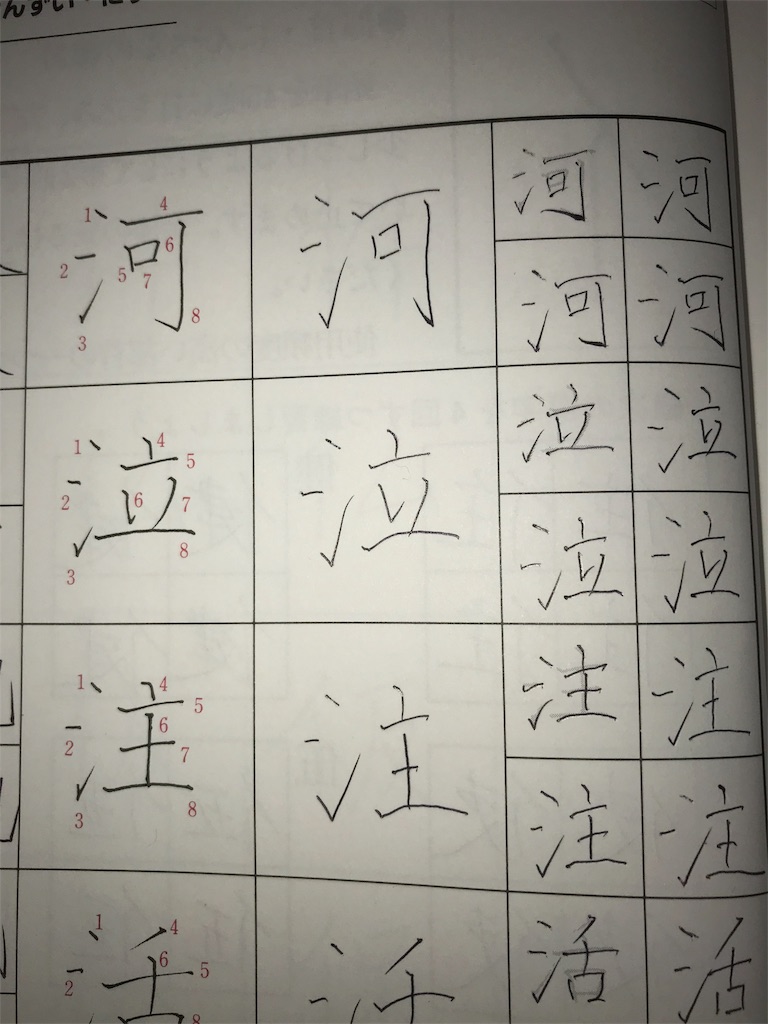 河 河 河 河
河 河
泣 泣 泣 泣
泣 泣
注 注 注 注
注 注
活 活 活 活
1 2 3 4 5 6 7 8
1 2 3 4 5 6 7 8
1 2 3 4 5 6 7 8
1 2 4 5 6 8